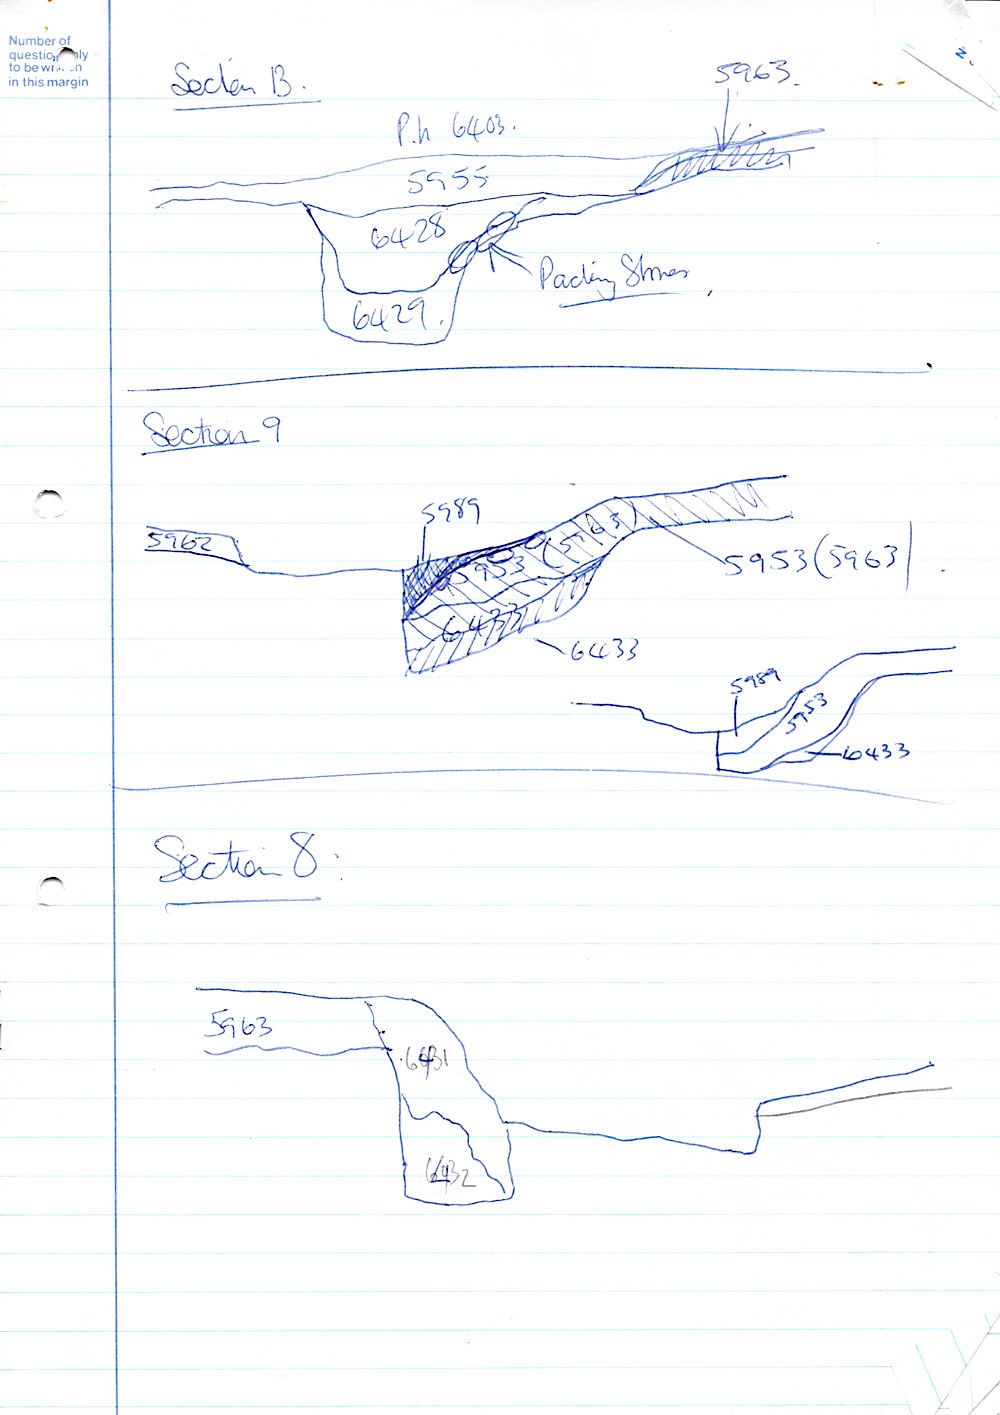 Number of
question only
to be written
in this margin
Section B.
5963.
P.h 6403.
5955
6428
Packing Stones
6429.
Section 9
5989
5962
5953 (5963)
5953 (5963)
6433
6433
5989
5953
6433
Section 8.
5963
6431
6432